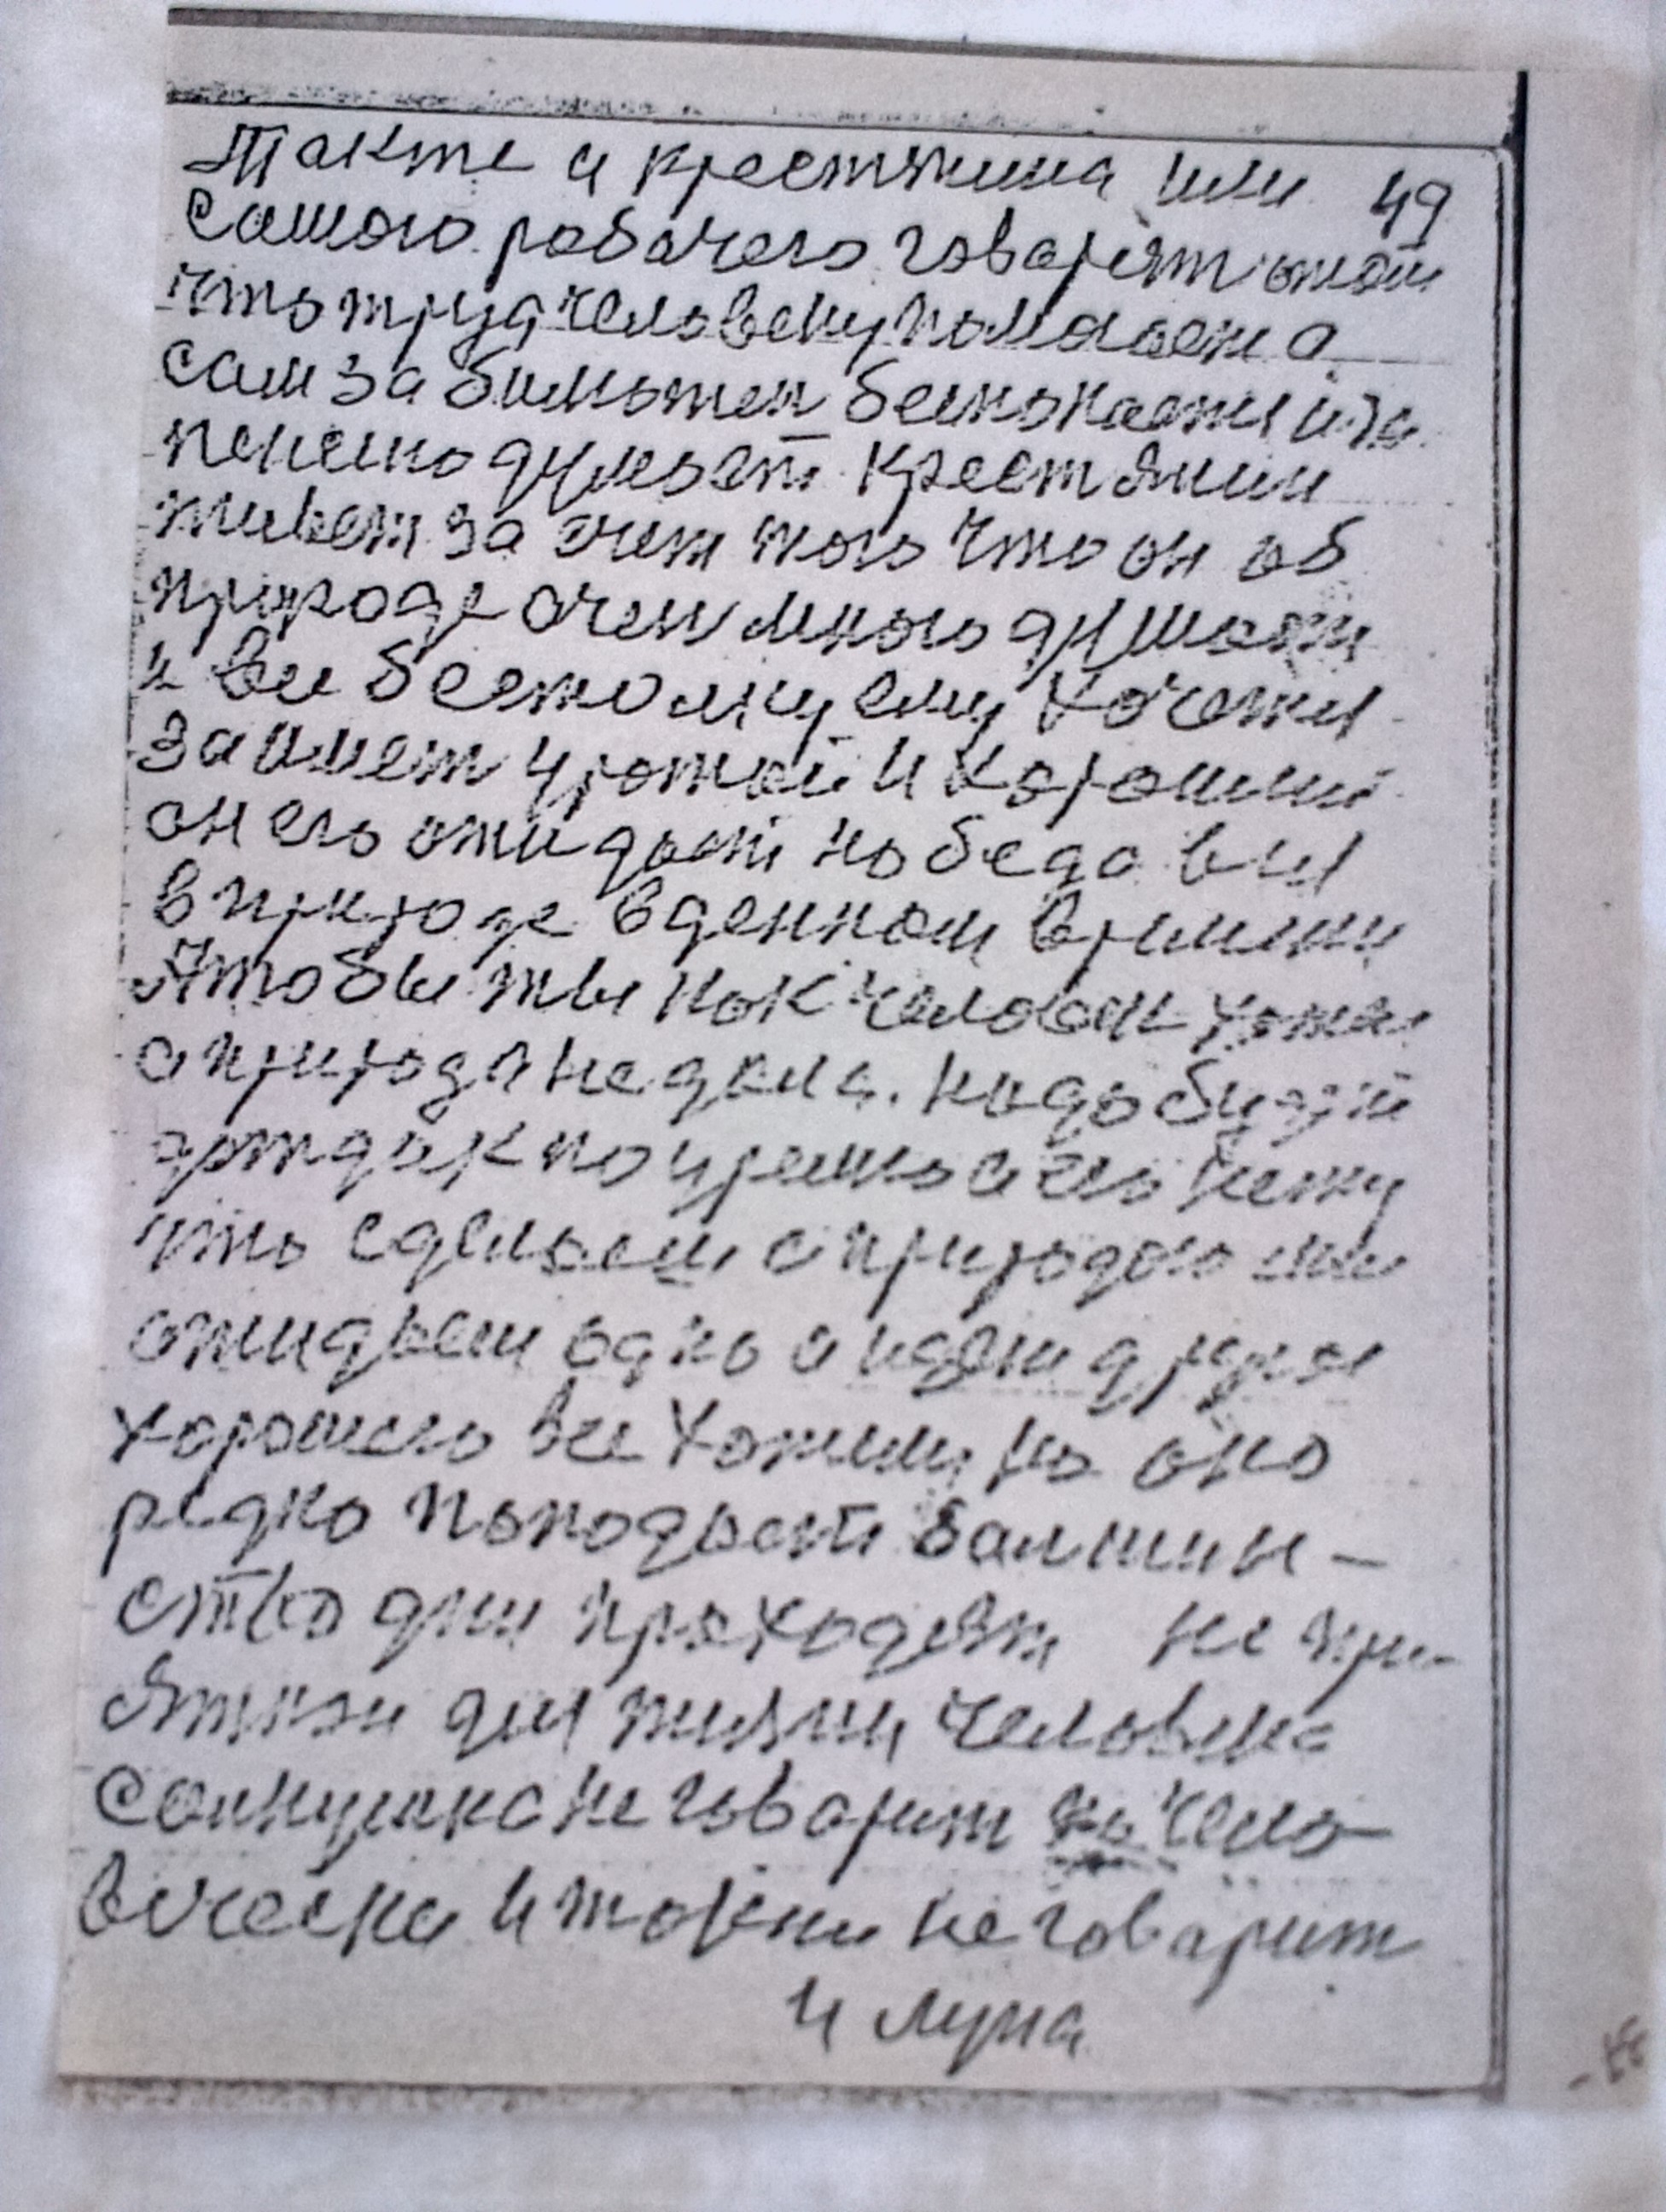 Также и крестянина или 49
самого рабочего говарят он
что труд человеку помогает а
сам за бюлютен беспокаетя
пенсию думает. Крестянин
живет за счет того что он об
природе очен много думает
и все бестолку ему хочетя
заимет урожай и хороший
он его ожидает но беда вся
в природе в денном времини
Чтобы ты как человек хотел
а природа не дала. надо будет
дождик по уремю а его нету
что сделаеш с природою мы
ожидаем одно а идет другое
хорошего все хотим, но оно
редко попадает балшин-
ство дни праходят не при-
ятнои для жизни человека
Солнушко не говарит по чело-
веческа и также не говарит
и луна